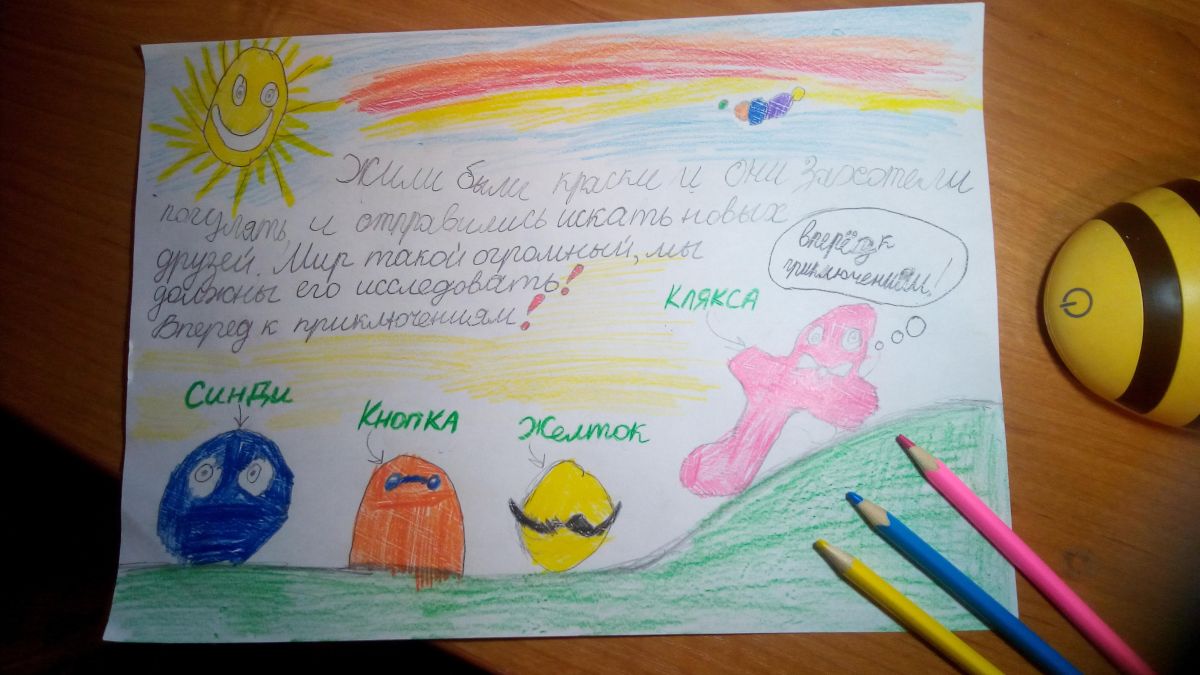 Жили были краски и они захотели
погулять, и отправились искать новых
друзей. Мир такой огромный, мы
должны его исследовать!
Вперед к приключениям!
вперёд к
приключениям!
Клякса
Синди
Кнопка
Желток